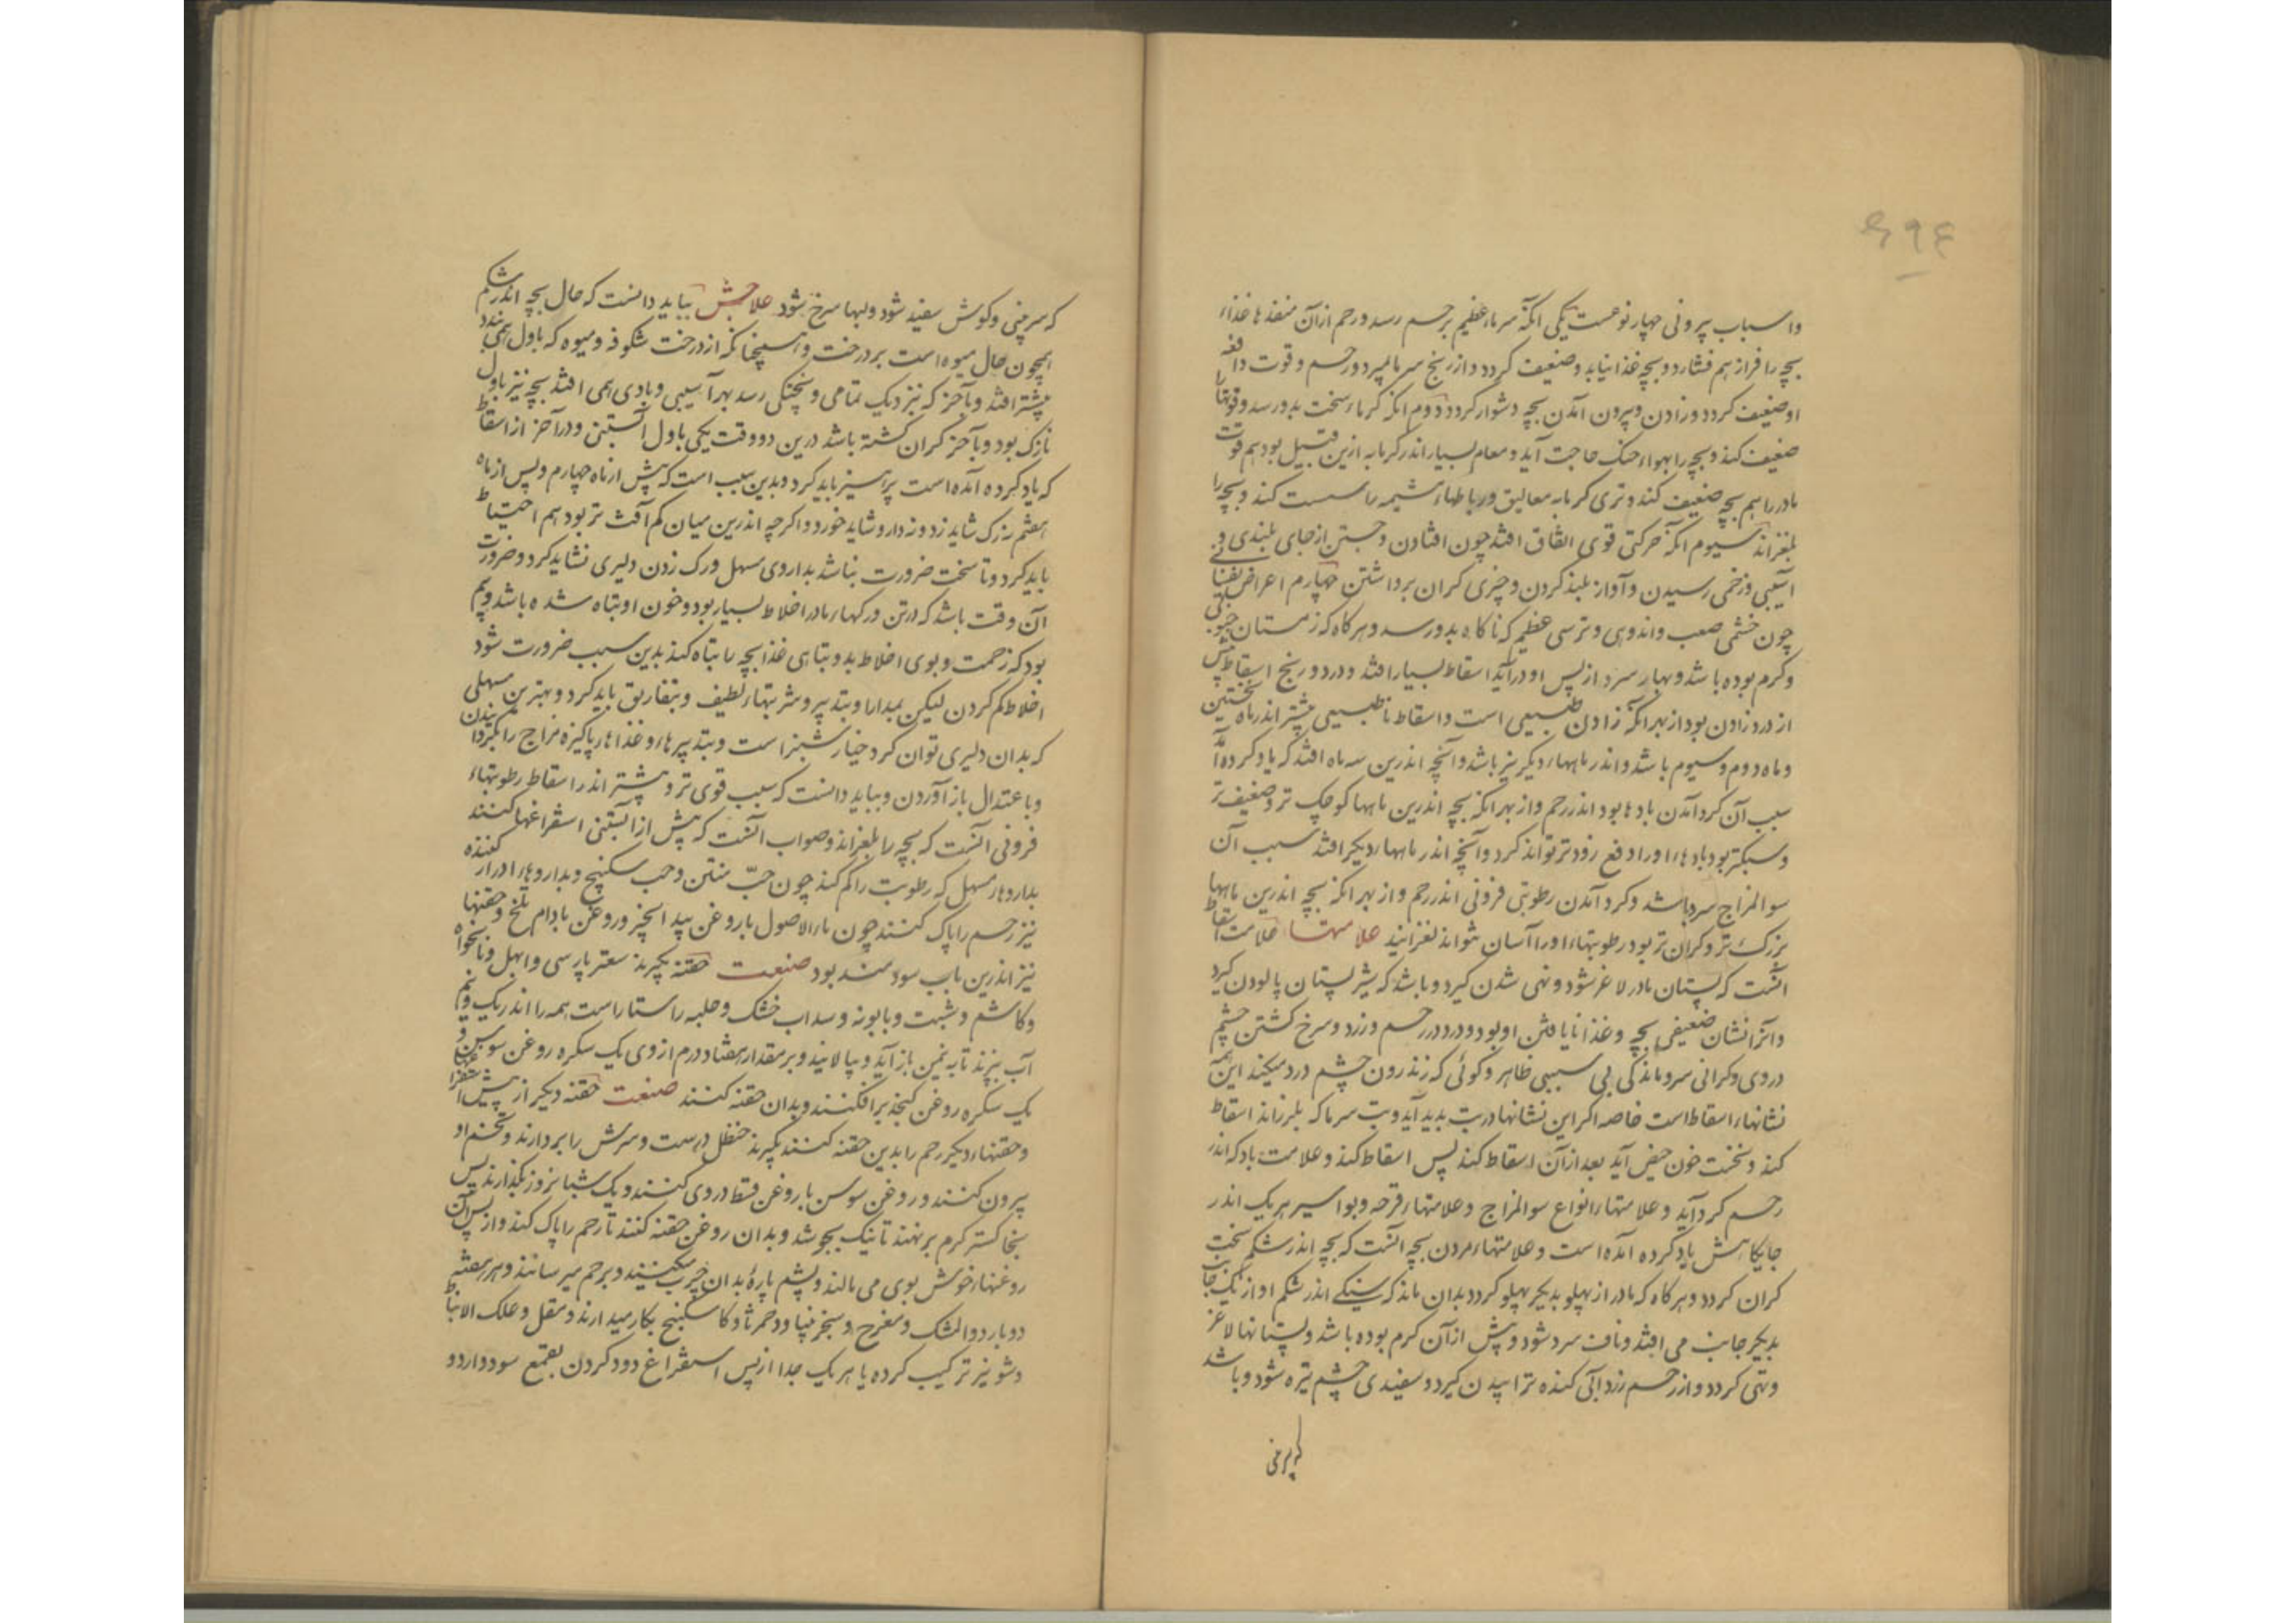 ۶۹۴
واسباب بیرونی چهار نوعست یکی آنکه سرماء عظیم برحم رسد و رحم از آن منفذها غذاء
بچه را فراز هم فشارد و بچه غذا نیابد و ضعیف گردد و از رنج سرما بمیرد و رحم و قوت دافعه
او ضعیف گردد و زادن و بیرون آمدن بچه دشوار گردد دوم آنکه گرماء سخت بدو رسد و قوتها
ضعیف کند و بچه را بهواء خنک حاجت آید و مقام بسیار اندر گرمابه ازین قبیل بود هم قوت
مادر را هم بچه ضعیف کند و تری گرمابه معالیق و رباطهاء مشیمه را سست کند و بچه را
بلغزاند سیوم آنکه حرکتی قوی اتفاق افتد چون افتادن و جستن از جای بلندی و
آسیبی و زخمی رسیدن و آواز بلند کردن و چیزی گران برداشتن چهارم اعراض نفسانی
چون خشمی صعب و اندوهی و ترسی عظیم که ناگاه بدو رسد و هرگاه که زمستان جنوبی
و گرم بوده باشد و بهار سرد از پس او در آید اسقاط بسیار افتد و درد و رنج اسقاط بیش
از درد زادن بود از بهر آنکه زادن طبیعی است و اسقاط ناطبیعی بیشتر اندر ماه نخستین
و ماه دوم و سیوم باشد و اندر ماهها دیگر نیز باشد و آنچه اندرین سه ماه افتد که یاد کرده آمد
سبب آن گرد آمدن بادها بود اندر رحم و از بهر آنکه بچه اندرین ماهها کوچک تر و ضعیف تر
و سبکتر بود بادها او را دفع زودتر تواند کرد و آنچه اندر ماهها دیگر افتد سبب آن
سوالمزاج سرد باشد و گرد آمدن رطوبتی فزونی اندر رحم و از بهر آنکه بچه اندرین ماهها
بزرگ تر و گران تر بود رطوبتهاء او را آسان تواند لغزانید علامتها علامت اسقاط
آنست که پستان مادر لاغر شود و تهی شدن گیرد و باشد که شیر پستان پالودن گیرد
و آنرا نشان ضعیفی بچه و غذا نایافتن او بود و درد در رحم و زرد و سرخ گشتن چشم
در وی و گرانی سر و ماندگی بی سببی ظاهر و گوئی که زندرون چشم درد میکند این همه
نشانهاء اسقاط است خاصه اگر این نشانها در تب پدید آید و تب سرما که بلرزاند اسقاط
کند و نخست خون حیض آید بعد از آن اسقاط کند پس اسقاط کند و علامت باد که اندر
رحم گرد آید و علامتهاء انواع سوالمزاج و علامتهاء قرحه و بواسیر هر یک اندر
جایگاهش یاد کرده آمده است و علامتهاء مردن بچه آنست که بچه اندر شکم سخت
گران گردد و هرگاه که مادر از پهلو بدیگر پهلو گردد بدان ماند که سنگی اندر شکم او از یک جانب
بدیگر جانب می افتد و ناف سرد شود و پیش از آن گرم بوده باشد و پستانها لاغر
و تهی گردد و از رحم زردابی گنده ترابیدن گیرد و سفیدی چشم تیره شود و باشد
که سر بینی
که سر بینی و گوش سفید شود و لبها سرخ شود علاجش بباید دانست که حال بچه اندر شکم
همچون حال میوه است بر درخت و همچنانکه از درخت شکوفه و میوه که باول همی بندد
بیشتر افتد و بآخر که نزدیک تمامی و پختگی رسد بهر آسیبی و بادی همی افتد بچه نیز باول
نازک بود و بآخر گران گشته باشد درین دو وقت یکی باول آبستنی و در آخر از اسقاط
که یاد کرده آمده است پرهیز باید کرد و بدین سبب است که پیش از ماه چهارم و پس از ماه
هفتم نه رگ شاید زد و نه دارو شاید خورد و اگرچه اندرین میان کم آفت تر بود هم احتیاط
باید کرد و تا سخت ضرورت نباشد بداروی مسهل و رگ زدن دلیری نشاید کرد و ضرورت
آن وقت باشد که در تن و رگهاء مادر اخلاط بسیار بود و خون او تباه شده باشد و بیم
بود که زحمت و بوی اخلاط بد و تباهی غذا بچه را تباه کند بدین سبب ضرورت شود
اخلاط کم کردن لیکن بمدارا و بتدبیر و شربتهاء لطیف و بتفاریق باید کرد و بهترین مسهلی
که بدان دلیری توان کرد خیارشنبر است و بتدبیرهاء و غذاهاء پاکیزه مزاج را بگردانیدن
و باعتدال باز آوردن و بباید دانست که سبب قوی تر و بیشتر اندر اسقاط رطوبتهاء
فزونی آنست که بچه را بلغزاند و صواب آنست که پیش از آبستنی استفراغها کنند
بداروهاء مسهل که رطوبت را کم کند چون حبّ منتن و حب سکبینج و بداروهاء ادرار کننده
نیز رحم را پاک کنند چون ماءالاصول با روغن بید انجیر و روغن بادام تلخ و حقنها
نیز اندرین باب سودمند بود صنعت حقنه بگیرند سعتر پارسی و ابهل و نانخواه
و کاشم و شبت و بابونه و سداب خشک و حلبه راستاراست همه را اندر یک و نیم
آب بپزند تا به نیمن باز آید و بپالایند و بر مقدار هفتاد درم از وی یک سکره روغن سوسن و
یک سکره روغن کنجد برافکنند و بدان حقنه کنند صنعت حقنه دیگر از پیش استفراغها
و حقنهاء دیگر رحم را بدین حقنه کنند بگیرند حنظل درست و سرش را بردارند و تخم او
بیرون کنند و روغن سوسن با روغن قسط در وی کنند و یک شبانروز بگذارند پس
بخاکستر گرم برنهند تا نیک بجوشد و بدان روغن حقنه کنند تا رحم را پاک کند و از پس آن
روغنهاء خوش بوی می مالند و پشم پارهٔ بدان چرب میکنند و برحم میرسانند و هر هفته
دوبار دواالمشک و مفرح و سجزنیا و دحمرثا و کاسکبینج بکار میدارند و مقل و علک الانباط
و شونیز ترکیب کرده یا هر یک جدا از پس استفراغ دود کردن بقمع سود دارد و